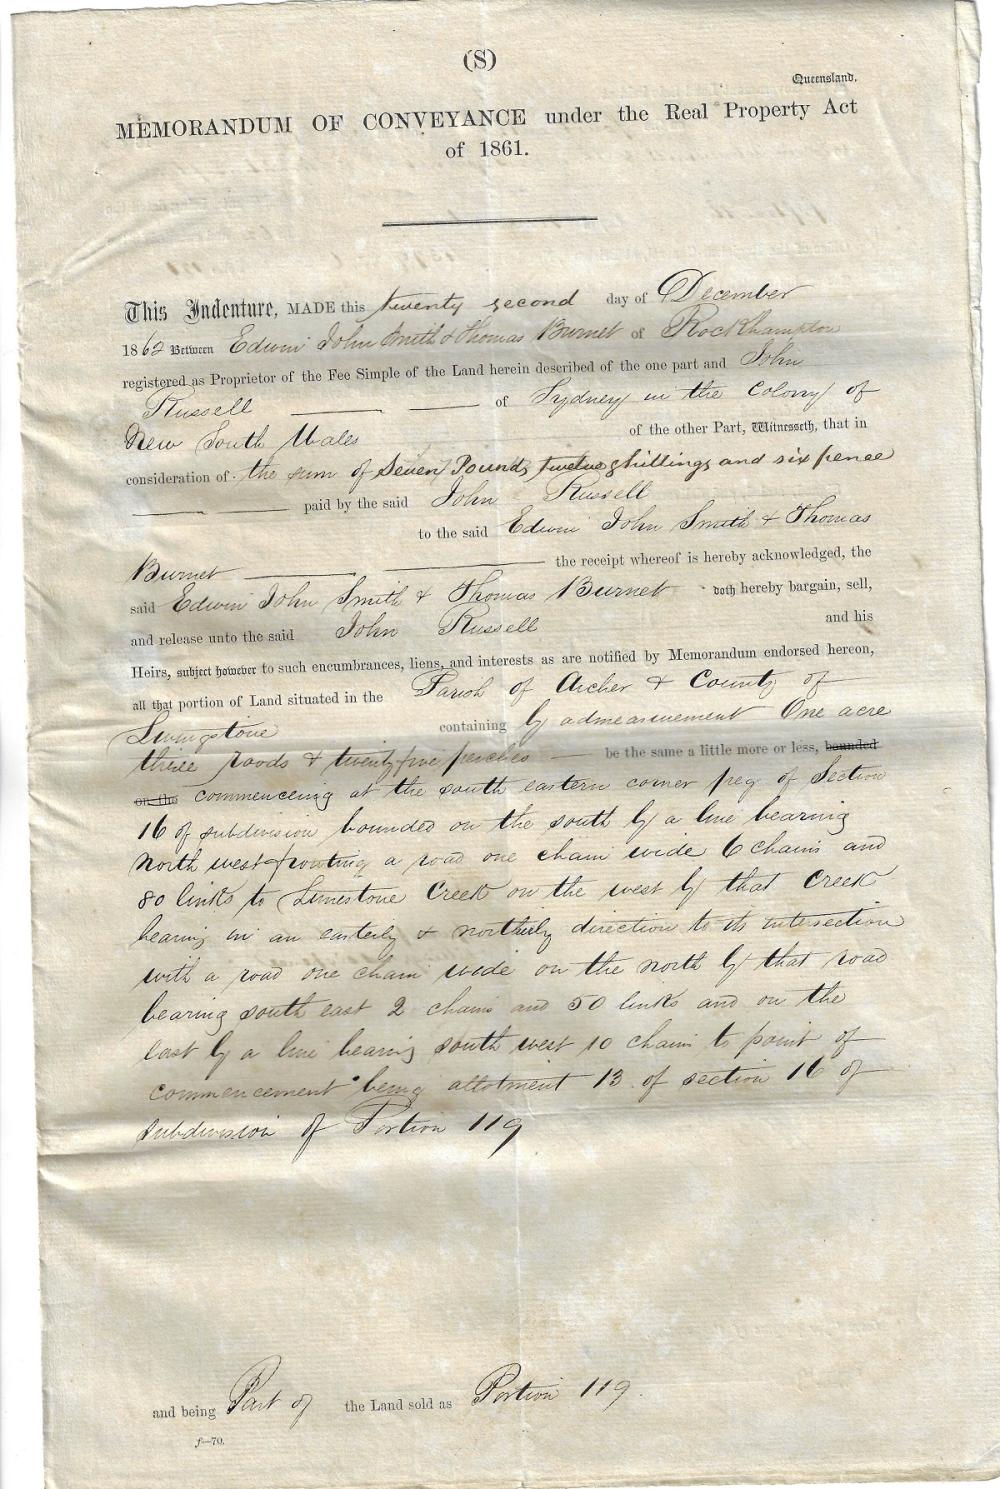 (S)
Queensland.
MEMORANDUM OF CONVEYANCE under the Real Property Act
of 1861.
This Indenture, MADE this twenty second day of December
1862 Between Edwin John Smith & Thomas Burnet of Rockhampton
registered as Proprietor of the Fee Simple of the Land herein described of the one part and John
Russell of Sydney in the Colony of
New South Wales of the other Part, Witnesseth, that in
consideration of the sum of Seven Pounds twelve shillings and six pence
paid by the said John Russell
to the said Edwin John Smith & Thomas
Burnet the receipt whereof is hereby acknowledged, the
said Edwin John Smith & Thomas Burnet doth hereby bargain, sell,
and release unto the said John Russell and his
Heirs, subject however to such encumbrances, liens, and interests as are notified by Memorandum endorsed hereon,
all that portion of Land situated in the Parish of Archer & County of
Livingstone containing by admeasurement One acre
three roods & twenty five perches be the same a little more or less, bounded
on the commencing at the south eastern corner peg of Section
16 of subdivision bounded on the south by a line bearing
north west fronting a road one chain wide 6 chains and
80 links to Limestone Creek on the west by that Creek
bearing in an easterly & northerly direction to its intersection
with a road one chain wide on the north by that road
bearing south east 2 chains and 50 links and on the
east by a line bearing south west 10 chains to point of
commencement being allotment 13 of section 16 of
subdivision of Portion 119
and being Part of the Land sold as Portion 119.
f—70.